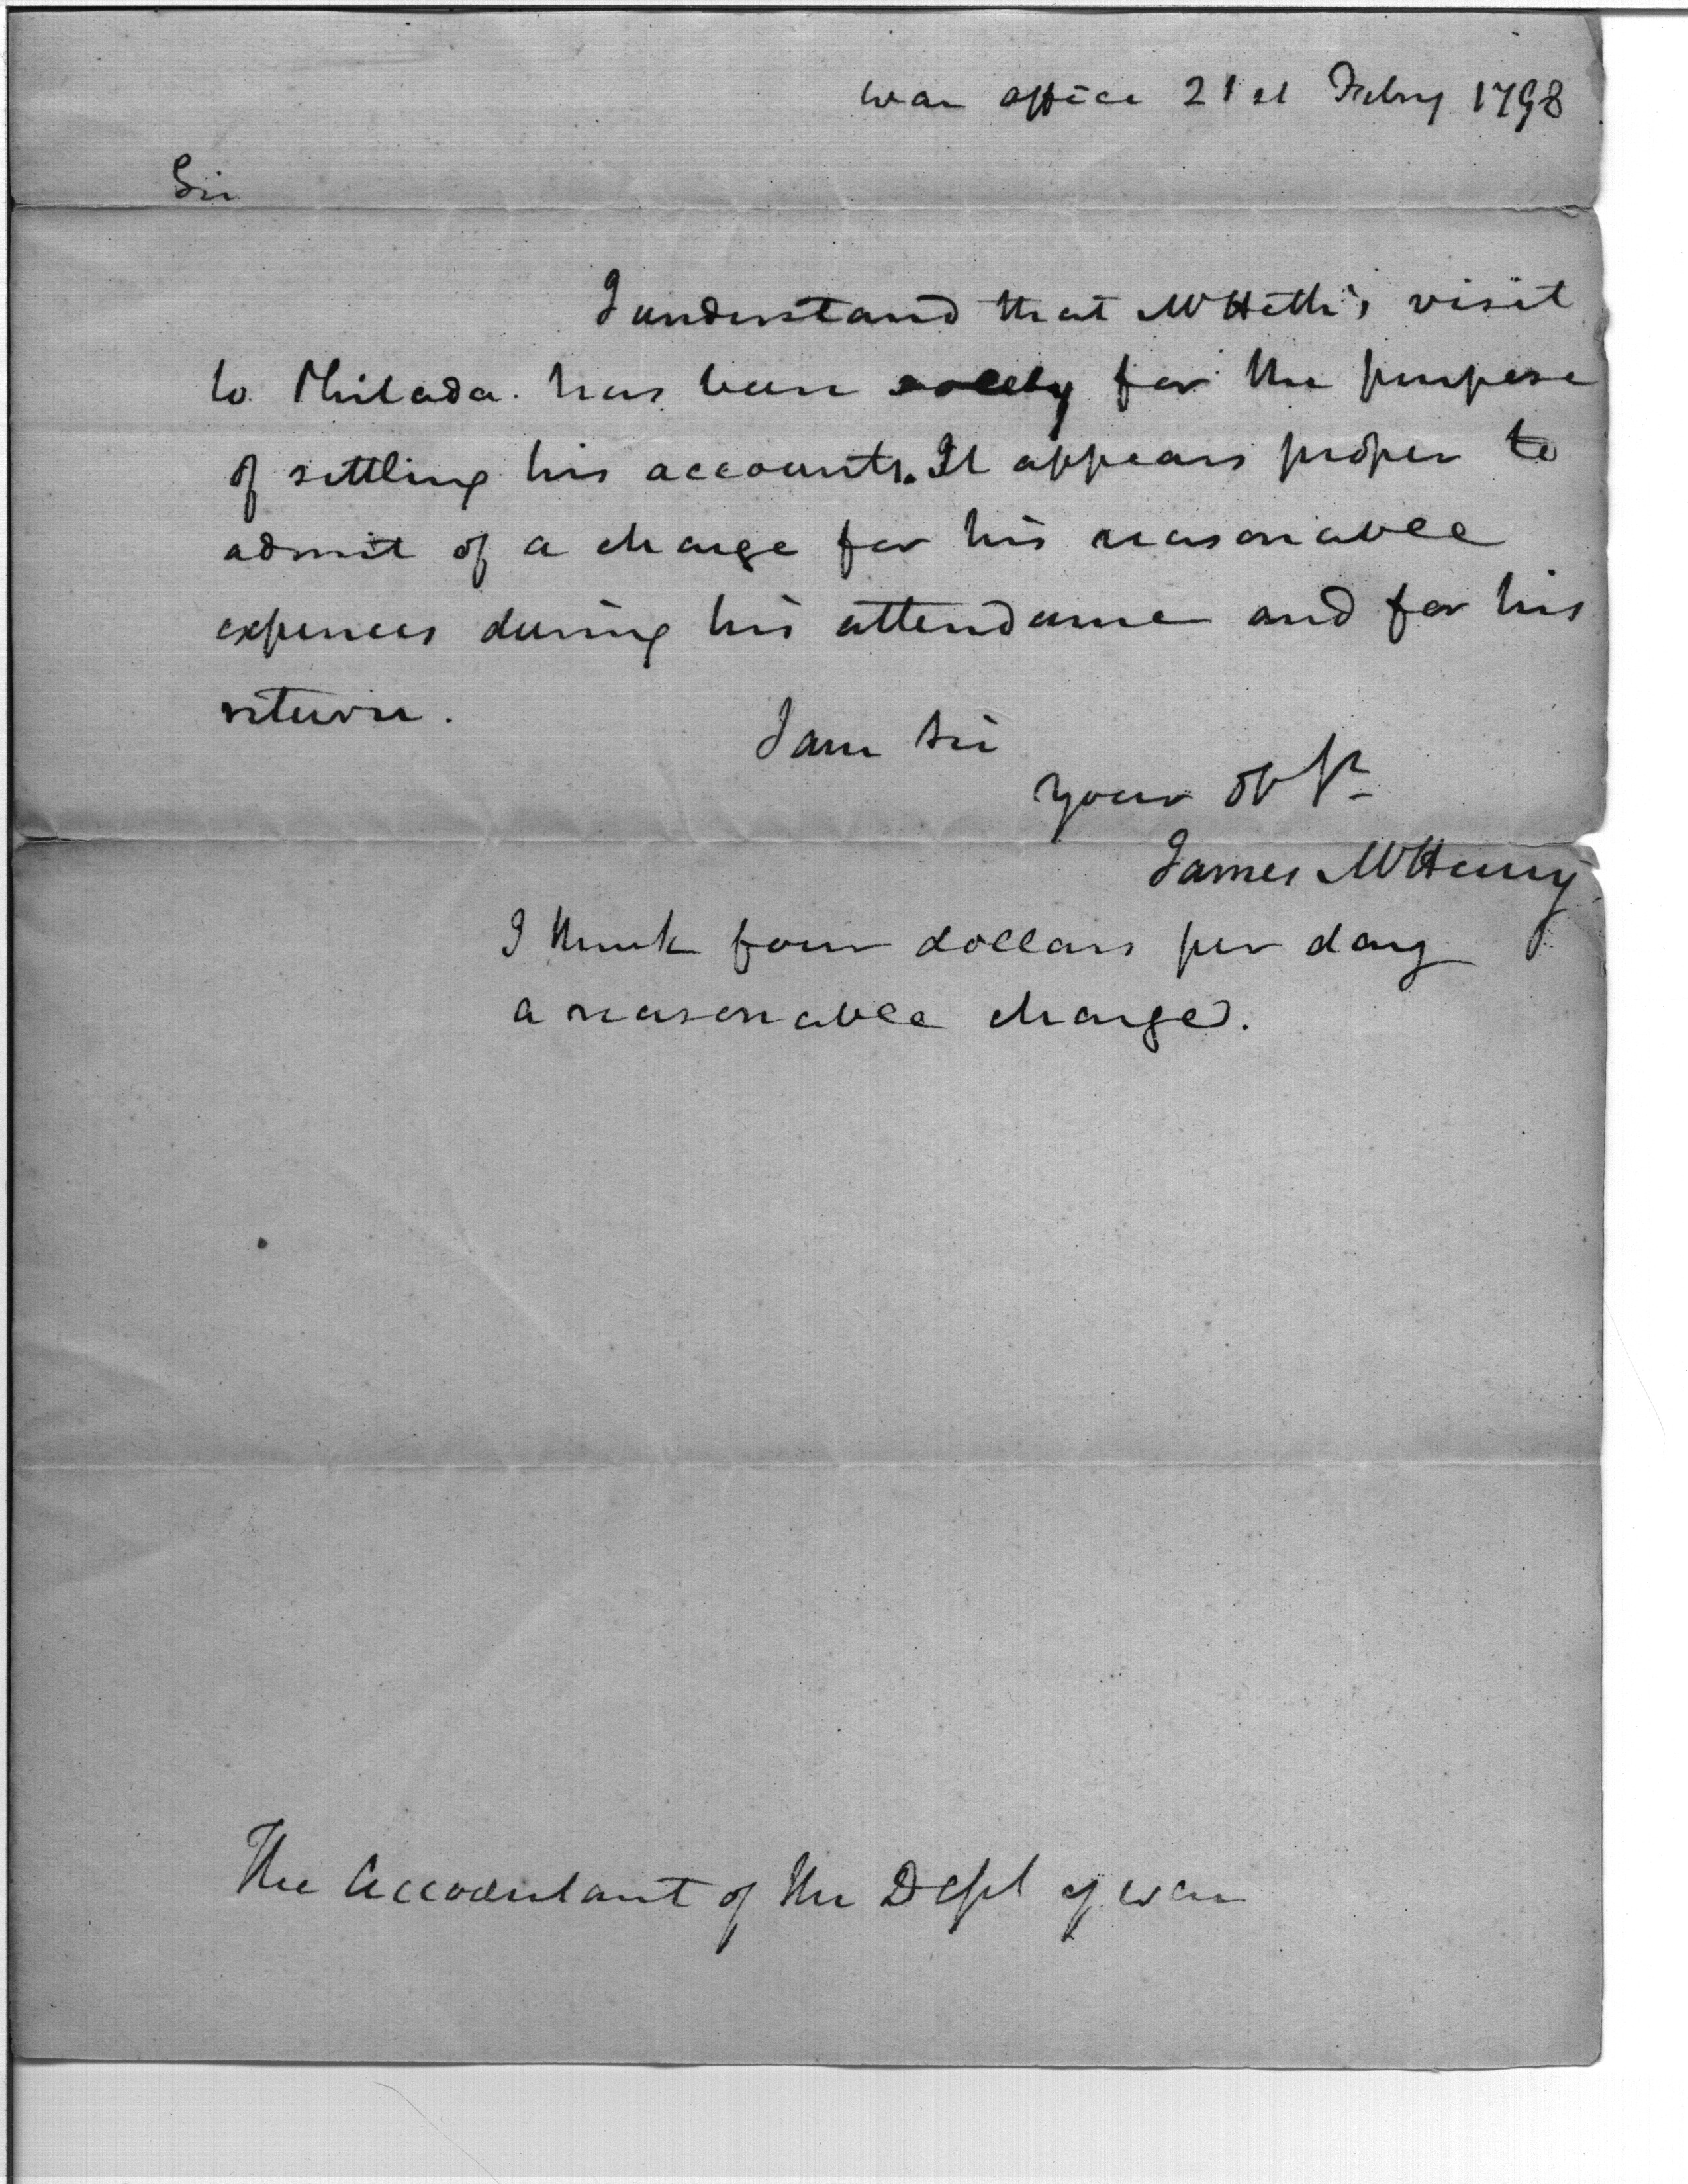 War office 21st Febry 1798
Sir
I understand that Mr Heth's visit
to Philada. has been solely for the purpose
of settling his accounts. It appears proper to
admit of a charge for his reasonable
expences during his attendance and for his
return.
I am Sir
your ob St
James McHenry
I think four dollars per day
a reasonable charge.
The Accountant of the Dept of war